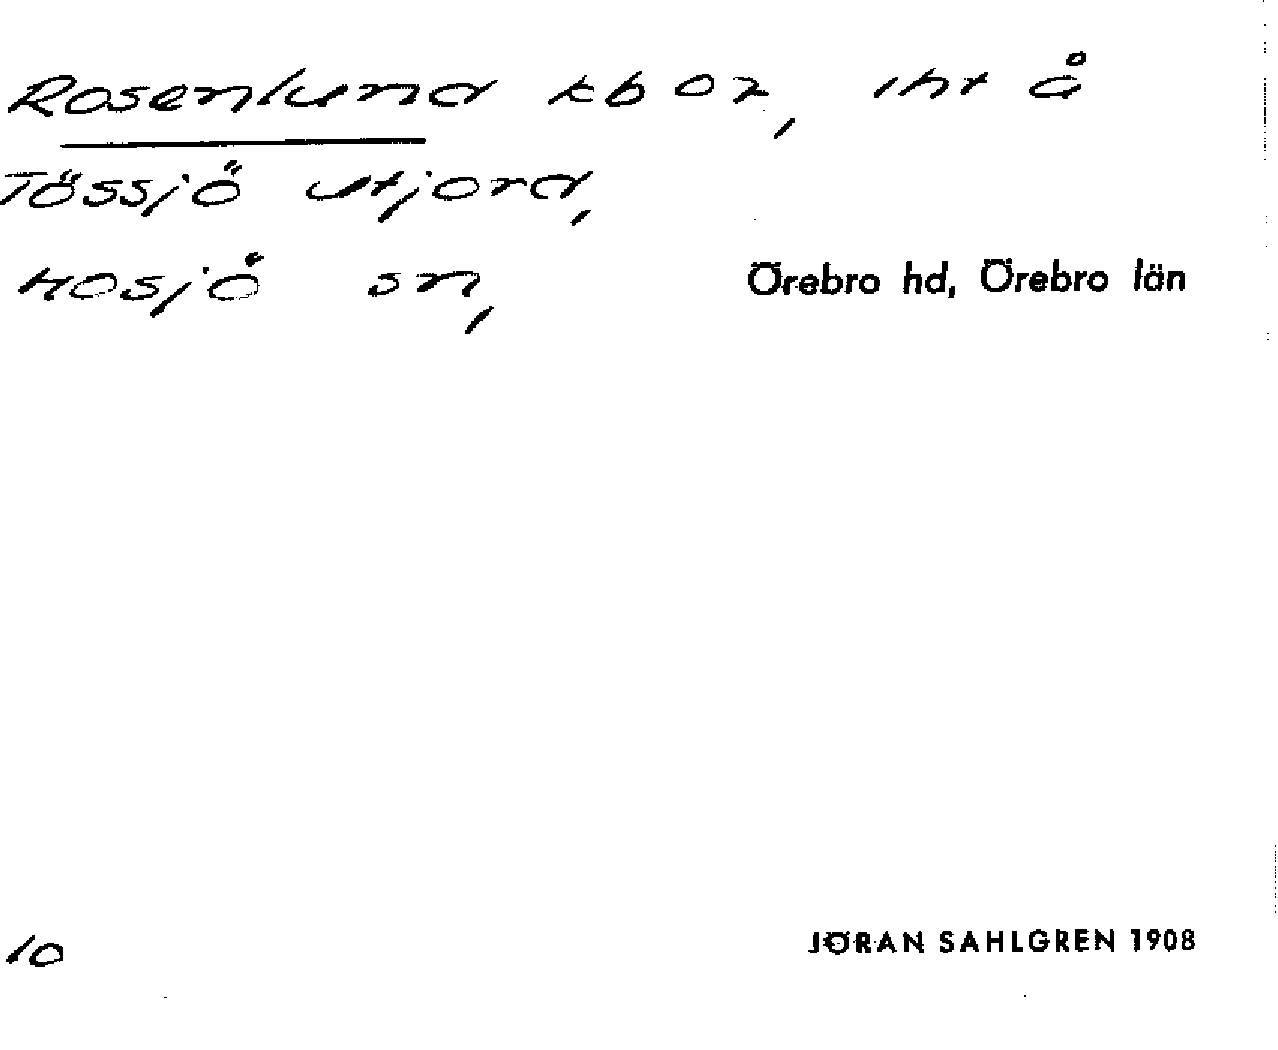 Rosenlund kb 02, iht å
Tössjö utjord,
Mosjö sn, Örebro hd, Örebro län
10
JÖRAN SAHLGREN 1908